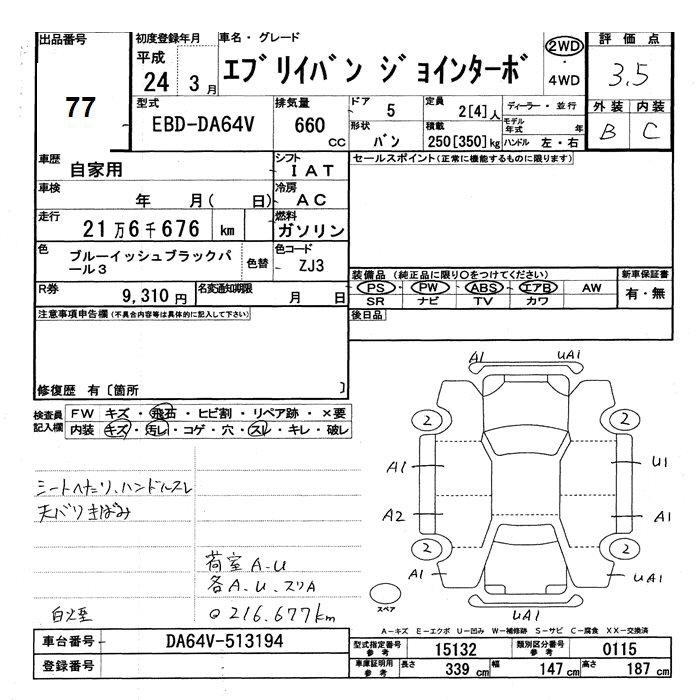 出品番号 初度登録年月 車名・グレード 評価点
77 平成 24 3月 エブリイバン ジョインターボ 2WD・4WD 3.5
外装 内装
B C
型式 EBD-DA64V 排気量 660 CC ドア 5 定員 2[4]人 ディーラー・並行
形状 バン 積載 250[350]kg モデル年式 年
ハンドル 左・右
車歴 自家用 シフト IAT セールスポイント(正常に機能するものに限ります)
車検 年 月( 日) 冷房 AC
走行 21万6千676 km 燃料 ガソリン
色 ブルーイッシュブラックパール3 色替 色コード ZJ3
装備品(純正品に限り〇をつけてください) 新車保証書
PS PW ABS エアB AW 有・無
SR ナビ TV カワ
R券 9,310円 名変通知期限 月 日
後日品
注意事項申告欄(不具合内容等は具体的に記入して下さい)
修復歴 有〔箇所 〕
検査員記入欄 FW キズ・飛石・ヒビ割・リペア跡・×要
内装 キズ・汚れ・コゲ・穴・スレ・キレ・破レ
シートへたり、ハンドルスレ
天バリきばみ
荷室A.U
各A.U.スリA
白煙 ◎216.677km
A1 UA1
2 2
A1 U1
A2 A1
2 2
A1 UA1
UA1
スペア
A－キズ E－エクボ U－凹み W－補修跡 S－サビ C－腐食 XX－交換済
車台番号 DA64V-513194
登録番号
型式指定番号 参考 15132 類別区分番号 参考 0115
車庫証明用 参考 長さ 339 cm 幅 147 cm 高さ 187 cm